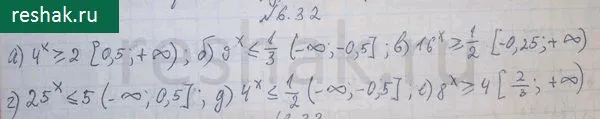 reshak.ru
№6.32
а) 4ˣ ≥ 2 [0,5; +∞); б) 9ˣ ≤ 1/3 (-∞; -0,5]; в) 16ˣ ≥ 1/2 [-0,25; +∞)
г) 25ˣ ≤ 5 (-∞; 0,5]; д) 4ˣ ≤ 1/2 (-∞; -0,5]; е) 8ˣ ≥ 4 [2/3; +∞)